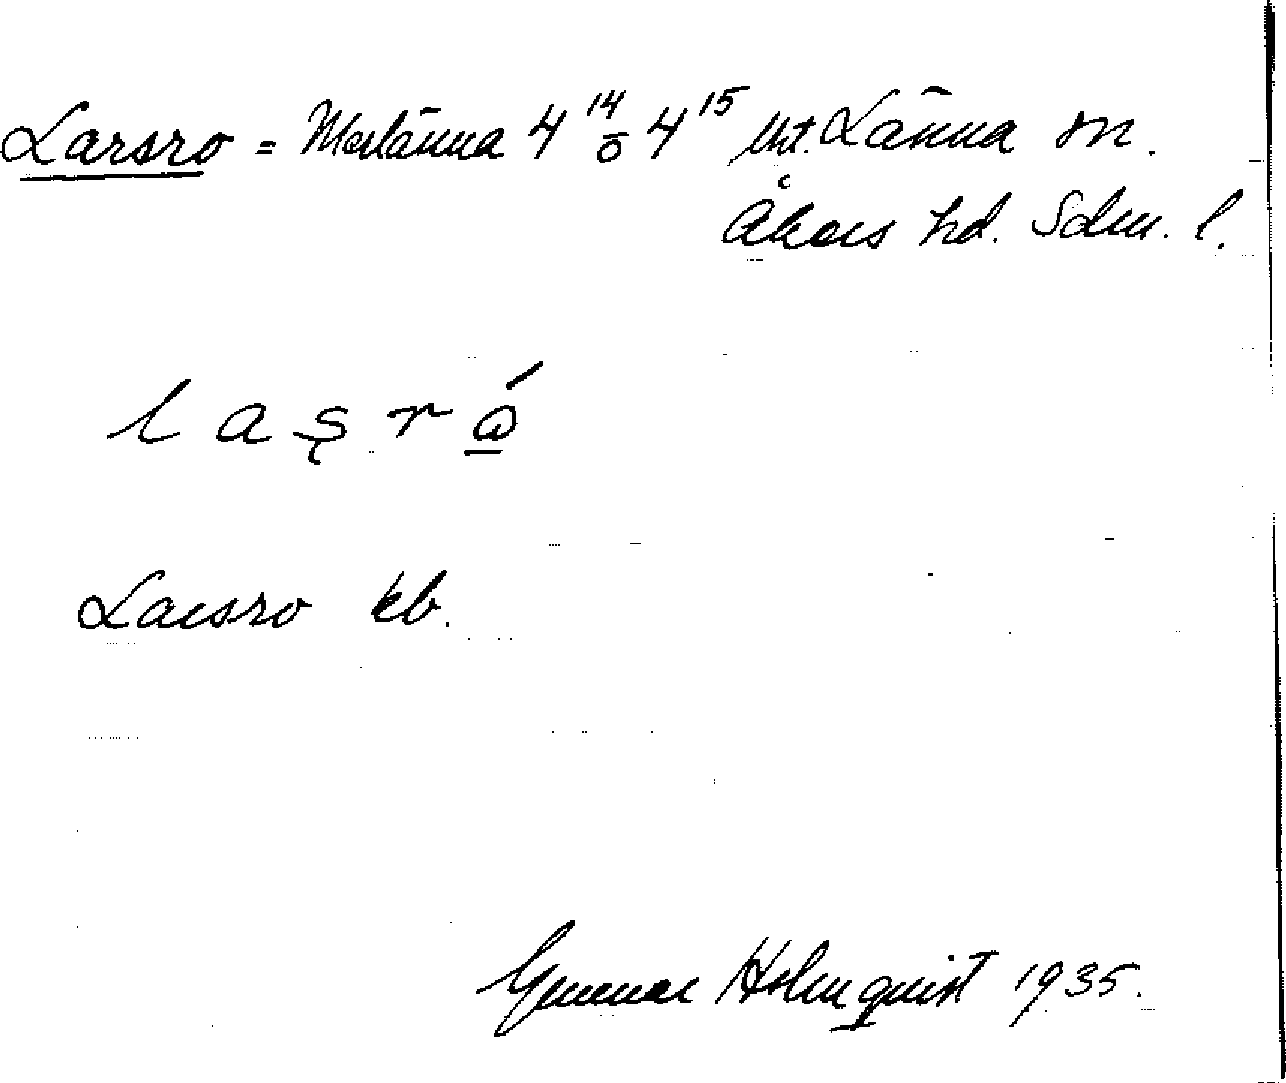 Larsro = Merlänna 4¹⁴ o 4¹⁵ Länna sn.
Åkers hd. Sdm. l.
laşrώ̲
Larsro kb.
Gunnar Holmquist 1935.